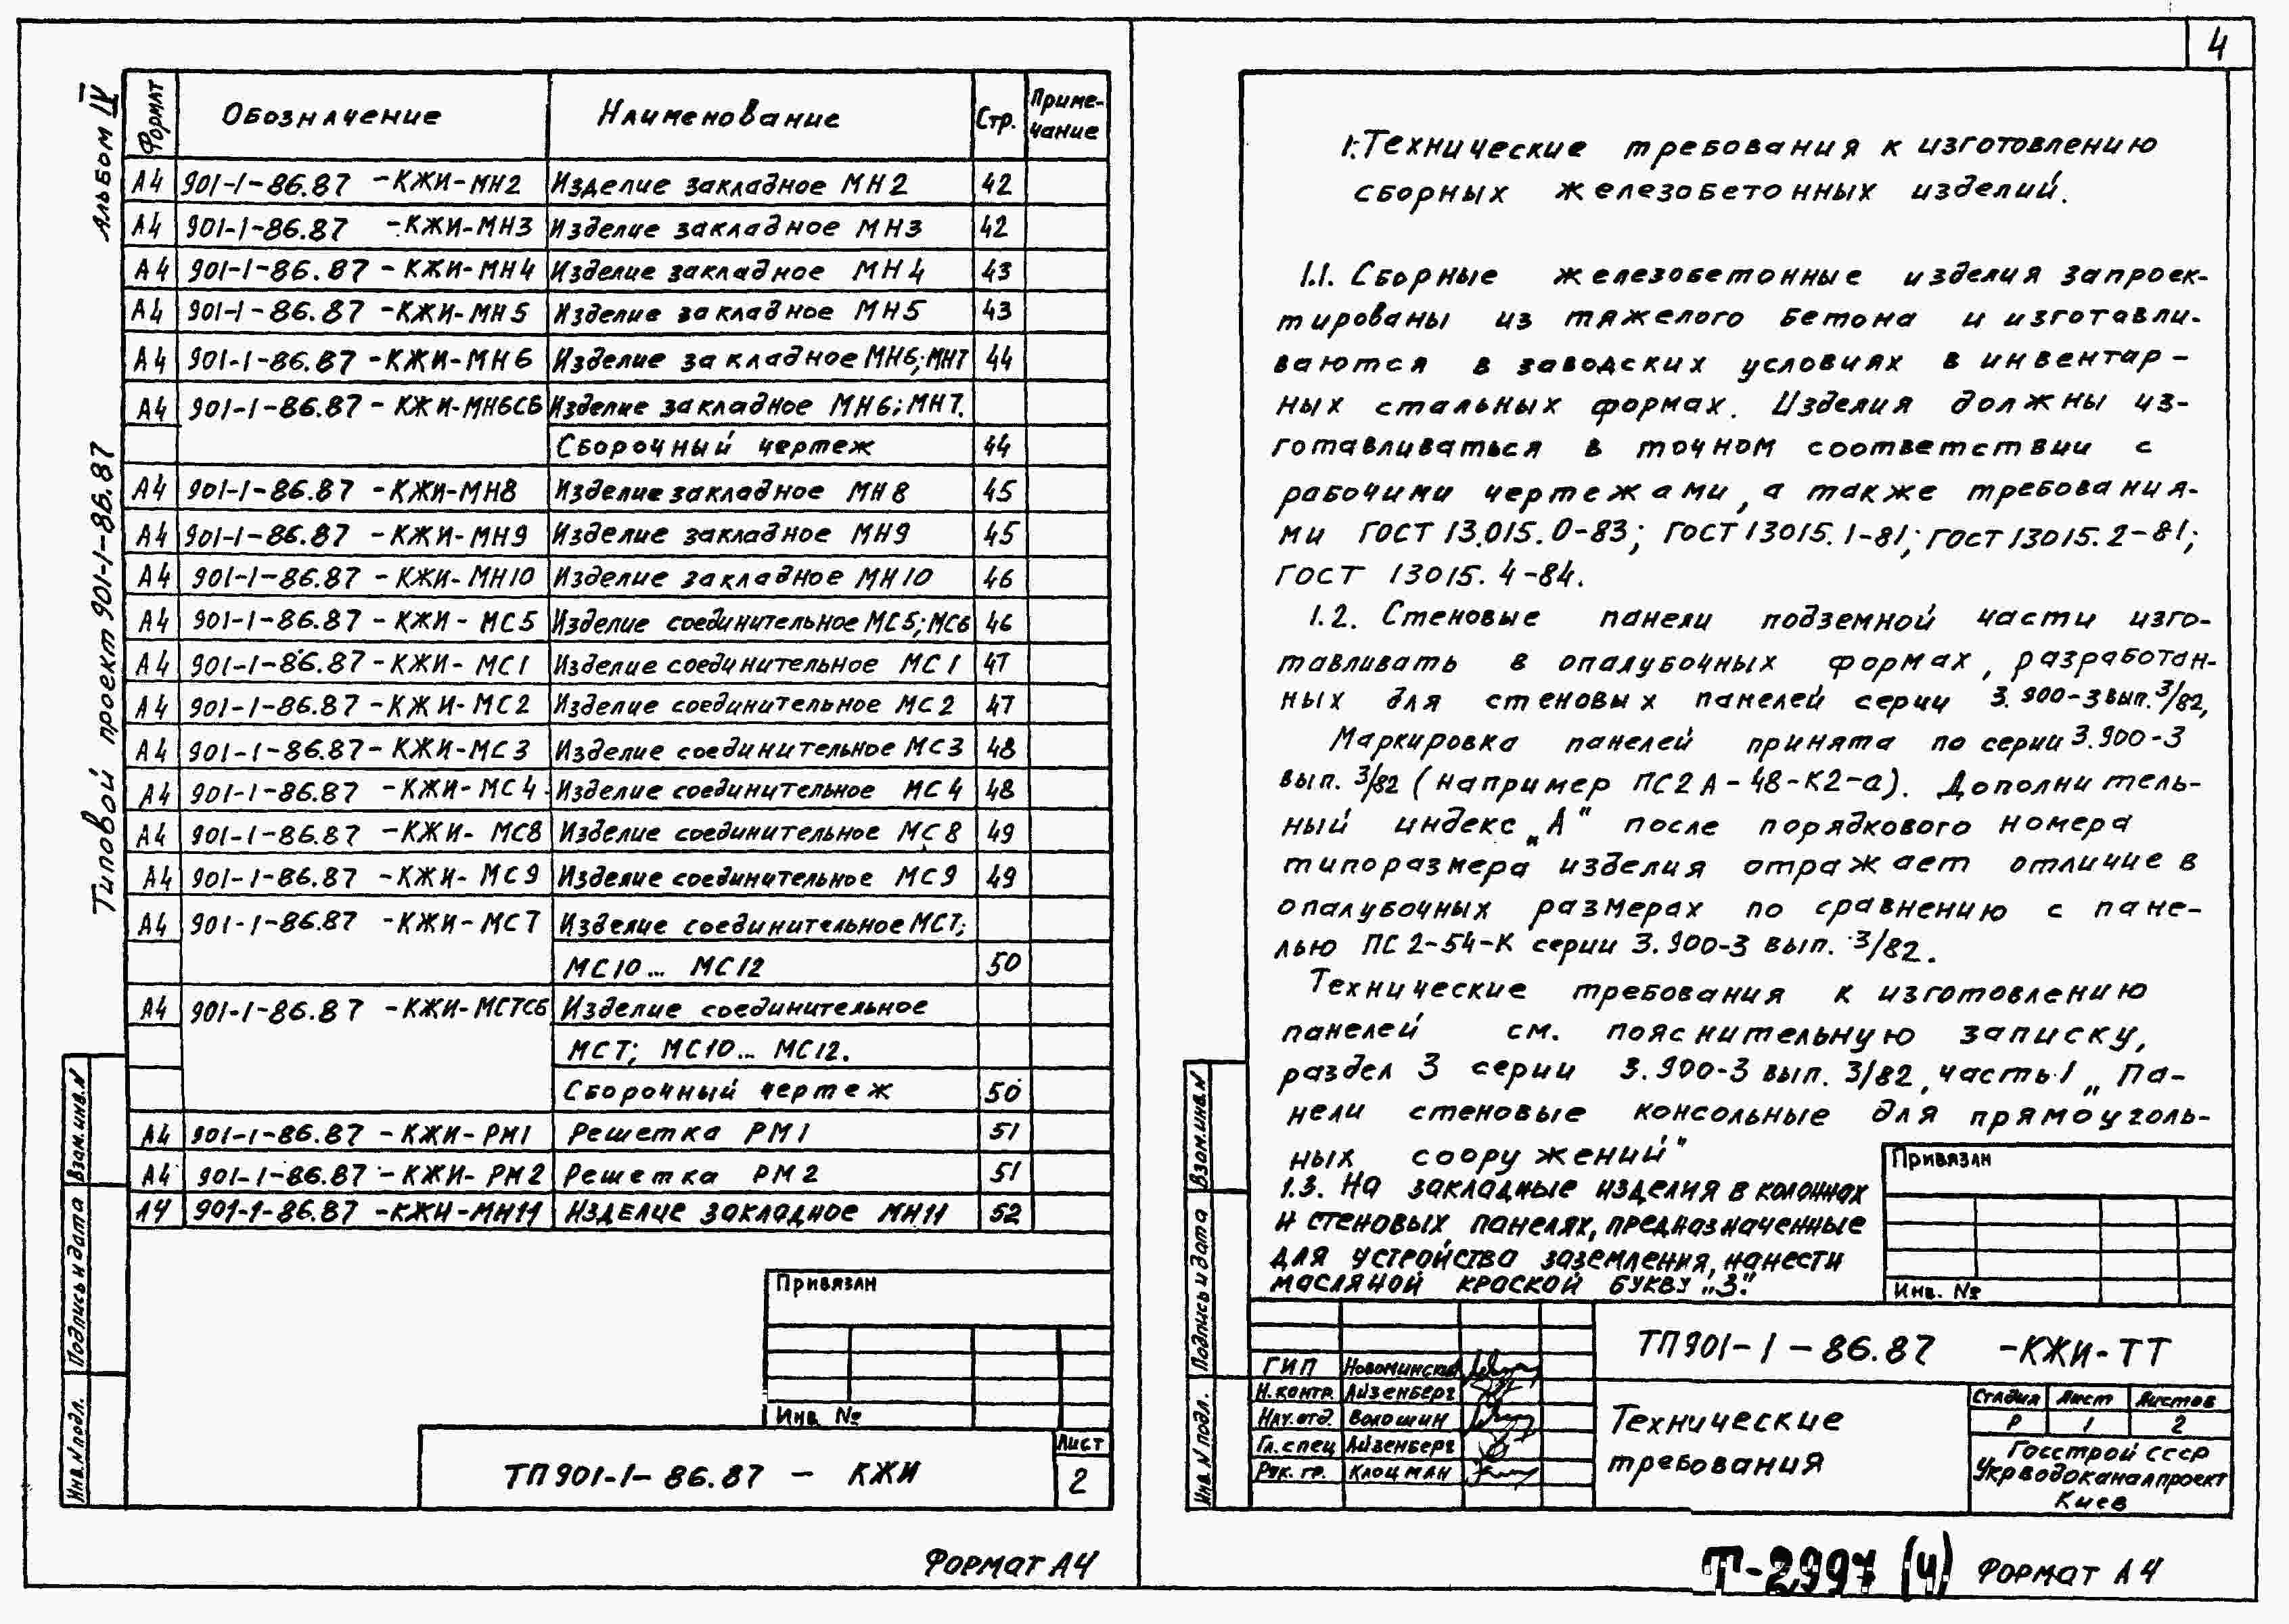 4
Альбом IV
Типовой проект 901-1-86.87
Формат Обозначение Наименование Стр. Приме-
чание
А4 901-1-86.87 -КЖИ-МН2 Изделие закладное МН2 42
А4 901-1-86.87 -КЖИ-МН3 Изделие закладное МН3 42
А4 901-1-86.87 -КЖИ-МН4 Изделие закладное МН4 43
А4 901-1-86.87 -КЖИ-МН5 Изделие закладное МН5 43
А4 901-1-86.87 -КЖИ-МН6 Изделие закладное МН6;МН7 44
А4 901-1-86.87 -КЖИ-МН6СБ Изделие закладное МН6;МН7.
Сборочный чертеж 44
А4 901-1-86.87 -КЖИ-МН8 Изделие закладное МН8 45
А4 901-1-86.87 -КЖИ-МН9 Изделие закладное МН9 45
А4 901-1-86.87 -КЖИ-МН10 Изделие закладное МН10 46
А4 901-1-86.87 -КЖИ-МС5 Изделие соединительное МС5;МС6 46
А4 901-1-86.87 -КЖИ-МС1 Изделие соединительное МС1 47
А4 901-1-86.87 -КЖИ-МС2 Изделие соединительное МС2 47
А4 901-1-86.87 -КЖИ-МС3 Изделие соединительное МС3 48
А4 901-1-86.87 -КЖИ-МС4 Изделие соединительное МС4 48
А4 901-1-86.87 -КЖИ-МС8 Изделие соединительное МС8 49
А4 901-1-86.87 -КЖИ-МС9 Изделие соединительное МС9 49
А4 901-1-86.87 -КЖИ-МС7 Изделие соединительное МС7;
МС10... МС12 50
А4 901-1-86.87 -КЖИ-МС7СБ Изделие соединительное
МС7; МС10... МС12.
Сборочный чертеж 50
А4 901-1-86.87 -КЖИ-РМ1 Решетка РМ1 51
А4 901-1-86.87 -КЖИ-РМ2 Решетка РМ2 51
А4 901-1-86.87 -КЖИ-МН11 Изделие закладное МН11 52
Взам.инв.N
Подпись и дата
Инв.N подл.
Привязан
Инв. №
ТП901-1-86.87 - КЖИ
Лист
2
Формат А4
1. Технические требования к изготовлению
сборных железобетонных изделий.
1.1. Сборные железобетонные изделия запроек-
тированы из тяжелого бетона и изготавли-
ваются в заводских условиях в инвентар-
ных стальных формах. Изделия должны из-
готавливаться в точном соответствии с
рабочими чертежами, а также требования-
ми ГОСТ 13.015.0-83; ГОСТ 13015.1-81; ГОСТ 13015.2-81;
ГОСТ 13015.4-84.
1.2. Стеновые панели подземной части изго-
тавливать в опалубочных формах, разработан-
ных для стеновых панелей серии 3.900-3 вып.3/82,
Маркировка панелей принята по серии 3.900-3
вып. 3/82 (например ПС2А-48-К2-а). Дополнитель-
ный индекс „А" после порядкового номера
типоразмера изделия отражает отличие в
опалубочных размерах по сравнению с пане-
лью ПС2-54-К серии 3.900-3 вып. 3/82.
Технические требования к изготовлению
панелей см. пояснительную записку,
раздел 3 серии 3.900-3 вып. 3/82, часть 1 „Па-
нели стеновые консольные для прямоуголь-
ных сооружений"
1.3. На закладные изделия в колоннах
и стеновых панелях, предназначенные
для устройства заземления, нанести
масляной краской букву „З".
Взам.инв.N
Подпись и дата
Инв.N подл.
Привязан
Инв. №
ТП901-1-86.87 -КЖИ-ТТ
ГИП Новоминский
Н.контр. Айзенберг
Нач.отд. Волошин
Гл.спец Айзенберг
Рук. гр. Клоцман
Технические
требования
Стадия Лист Листов
Р 1 2
Госстрой СССР
Укрводоканалпроект
Киев
Т-2997 (4) Формат А4